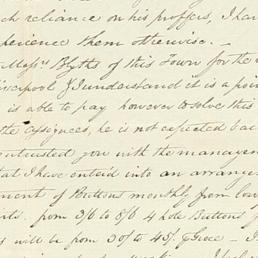 ch reliance on his proffers, I hav
xperience them otherwise. –
Messrs Blyths of this Town for the
iverpool & I understand it is a poin
is able to pay however to solve this
the assignees, he is not expected bac
entrusted you with the managem
that I have entered into an arrange
ment of Buttons monthly from
nts. from 3/6 to 8/6 4 hole Buttons f
s will be from 30/ to 45/. Groce – I